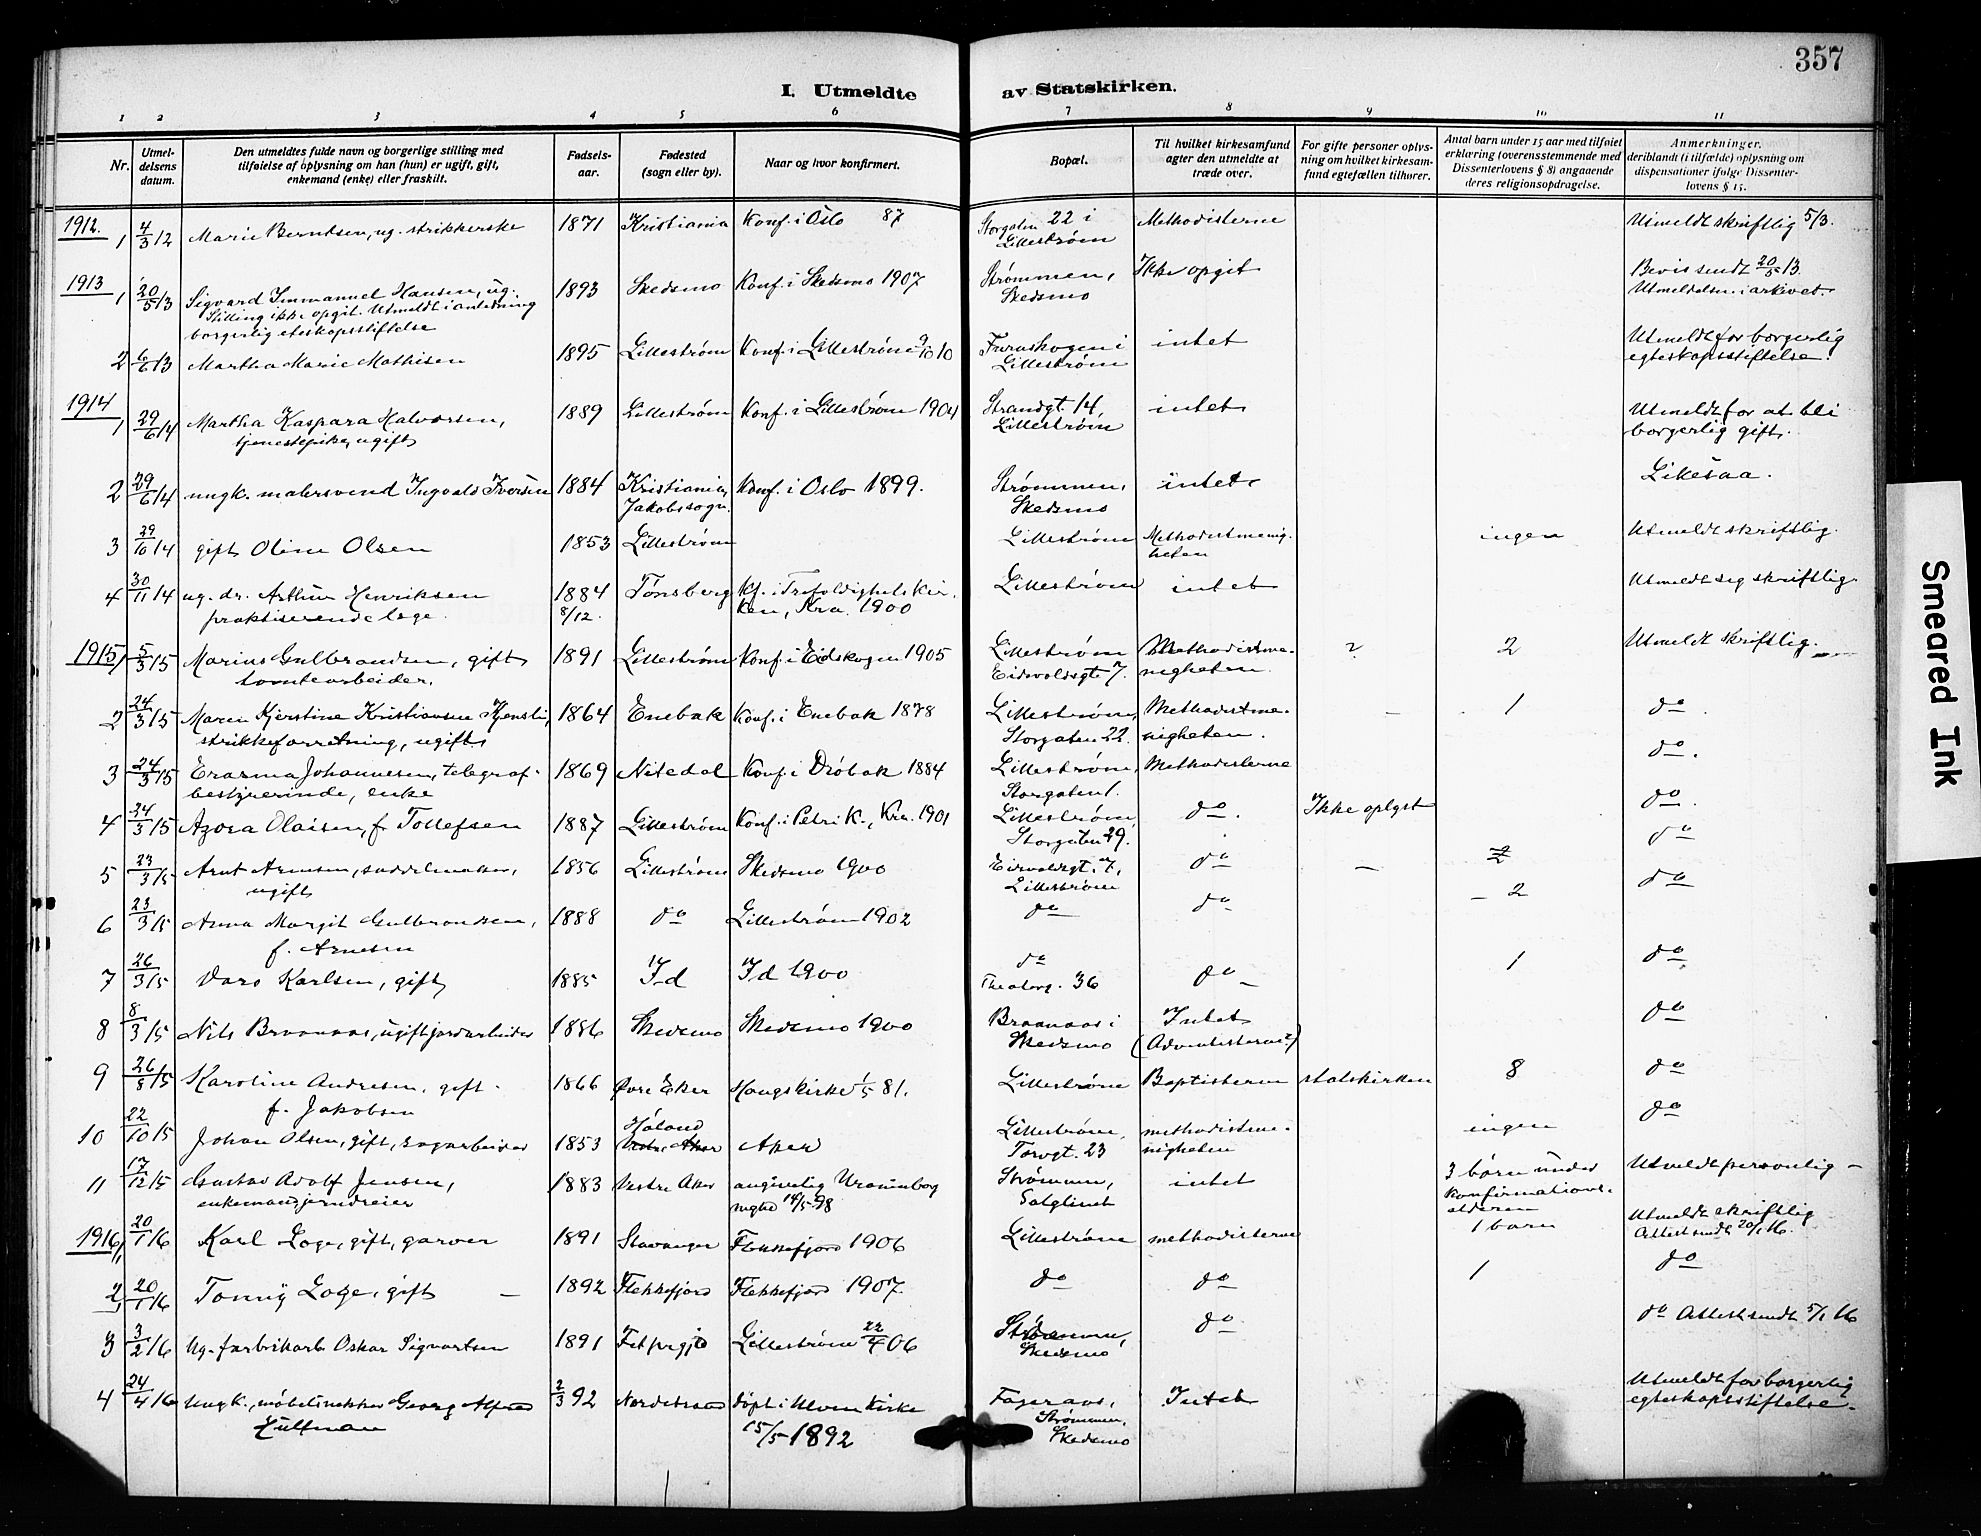 357
I. Utmeldte av Statskirken.
1 2 3 4 5 6 7 8 9 10 11
Nr.
Utmeldelsens datum.
Den utmeldtes fulde navn og borgerlige stilling med tilføielse af oplysning om han (hun) er ugift, gift, enkemand (enke) eller fraskilt.
Fødselsaar.
Fødested (sogn eller by).
Naar og hvor konfirmert.
Bopæl.
Til hvilket kirkesamfund agter den utmeldte at træde over.
For gifte personer oplysning om hvilket kirkesamfund egtefællen tilhører.
Antal barn under 15 aar med tilføiet erklæring (overensstemmende med Dissenterlovens § 8) angaaende deres religionsopdragelse.
Anmerkninger, deriblandt (i tilfælde) oplysning om dispensationer ifølge Dissenterlovens § 15.
1912. 1 4/3 12 Marie Berntsen, ug. strikkerske 1871 Kristiania Konf. i Oslo 87 Storgaten 22 i Lillestrøm Methodisterne Utmeldt skriftlig 5/3.
1913 1 20/5 13 Sigvard Immanuel Hansen, ug. Stilling ikke opgit. Utmeldt i anledning borgerlig eteskapsstiftelse 1893 Skedsmo Konf. i Skedsmo 1907 Strømmen, Skedsmo Ikke opgit Bevis sendt 20/5 13. Utmeldelsen i arkivet.
2 6/6 13 Martha Marie Mathisen 1895 Lillestrøm Konf. i Lillestrøm 9/10 10 Furuskogen i Lillestrøm intet Utmeldt for borgerlig egteskapsstiftelse.
1914 1 29/6 14 Martha Kaspara Halvorsen, tjenestepike, ugift 1889 Lillestrøm Konf. i Lillestrøm 1904 Strandgt. 14, Lillestrøm intet Utmeldt for at bli borgerlig gift.
2 29/6 14 ungk. malersvend Ingvald Iversen 1884 Kristiania, Jakobs sogn. Konf. i Oslo 1899. Strømmen, Skedsmo intet Likesaa.
3 29/10 14 gift Oline Olsen 1853 Lillestrøm Lillestrøm Methodistmenigheten ingen Utmeldt skriftlig.
4 30/11 14 ug. dr. Arthur Henriksen praktiserende læge. 1884 8/12. Tønsberg Kf. i Trefoldighetskirken, Kra. 1900 Lillestrøm intet Utmeldt seg skriftlig.
1915 1 5/3 15 Marius Gulbrandsen, gift tomtearbeider. 1891 Lillestrøm Konf. i Eidskogen 1905 Lillestrøm Eidsvoldsgt. 7. Methodistmenigheten. ? 2 Utmeldt skriftlig.
2 24/3 15 Maren Kjerstine Kristiansen Kjensli, strikkeforretning, ugift 1864 Enebak Konf. i Enebak 1878 Lillestrøm, Storgaten 22. Methodistmenigheten. - 1 do.
3 24/3 15 Erasma Johannesen, telegrafbestyrerinde, enke 1869 Nitedal Konf. i Drøbak 1884 Lillestrøm, Storgaten 1. Methodisterne do.
4 24/3 15 Azora Olaisen, f. Tollefsen 1887 Lillestrøm Konf. i Petri K., Kra. 1901 Lillestrøm, Storgaten 29. do. Ikke oplyst do.
5 23/3 15 Arnt Arnesen, saddelmaker, ugift 1856 Lillestrøm Skedsmo 1900 Eidsvoldsgt. 7, Lillestrøm do - 2 do
6 23/3 15 Anna Margit Gulbrandsen, f. Arnesen 1888 do Lillestrøm 1902 do do - 2 do
7 26/3 15 Karlsen, gift 1885 Id Id 1900 do 36 do 1 do
8 8/3 15 Nils Braanaas, ugift jordarbeider 1886 Skedsmo Skedsmo 1900 Braanaas i Skedsmo Intet (Adventisterne?) do
9 26/8 15 Karoline Andresen, gift. f. Jakobsen 1866 Øvre Eker Haugs kirke 1/5 81. Lillestrøm Baptisterne statskirken 8 do
10 22/10 15 Johan Olsen, gift, sagarbeider 1853 Høland Aker Lillestrøm, Torvgt. 23 methodistmenigheten ingen do
11 17/12 15 Gustav Adolf Jensen, enkemand, jerndreier 1883 Vestre Aker angivelig Uranienborg 14/5 98 Strømmen, intet 3 børn under konfirmationsalderen Utmeldt personlig -
1916 1 20/1 16 Karl Loge, gift, garver 1891 Stavanger Flekkefjord 1906 Lillestrøm methodisterne 1 barn Utmeldt skriftlig Attest sendt 20/1 16.
2 20/1 16 Tonny Loge, gift - 1892 Flekkefjord Flekkefjord 1907. do do 1 do
3 3/2 16 Ug. fabrikarb Oskar Sigvartsen 1891 Fet prgj Lillestrøm 22/4 06 Strømmen, Skedsmo do do Attest sendt 5/1 16
4 24/4 16 Ungk., møbelsnekker Georg Alfred Hultman 2/3 92 Nordstrand døpt i Ulvens Kirke 15/5 1892 Fageraas, Strømmen, Skedsmo Intet Utmeldt for borgerlig egteskapsstiftelse.
Smeared Ink